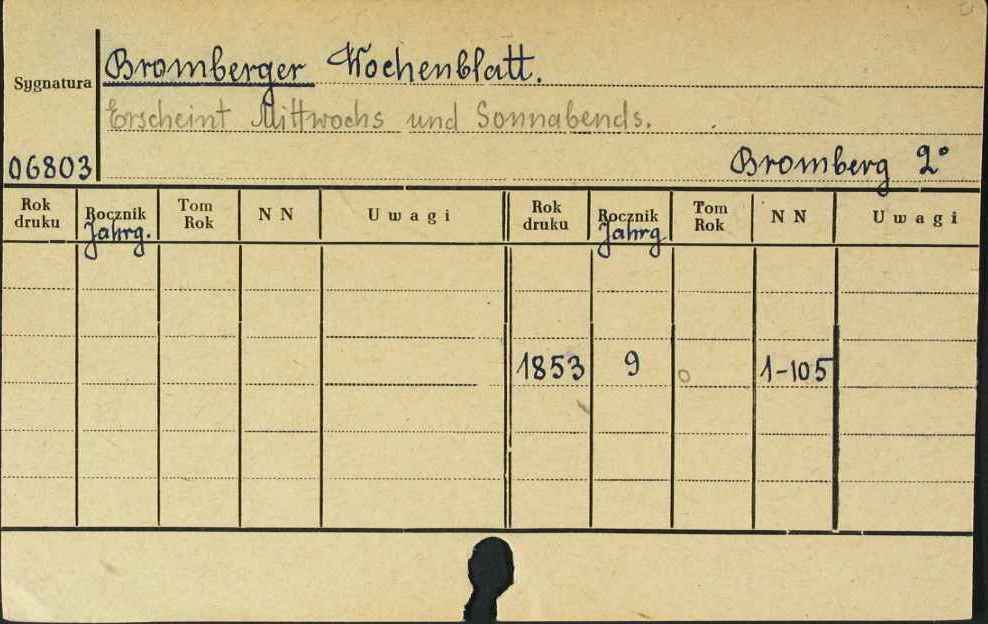 Bromberger Wochenblatt.
Sygnatura
Erscheint Mittwochs und Sonnabends.
06803
Bromberg 2°
Rok druku
Rocznik Jahrg.
Tom Rok
NN
Uwagi
Rok druku
Rocznik Jahrg
Tom Rok
NN
Uwagi
1853 9 1-105